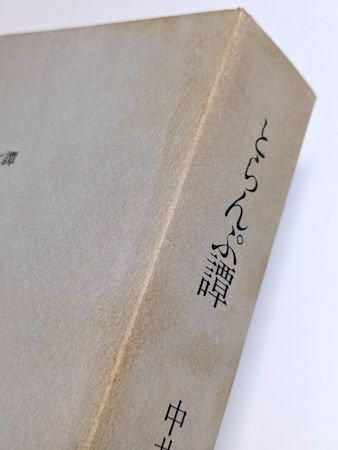 とらんぷ譚
中井
譚